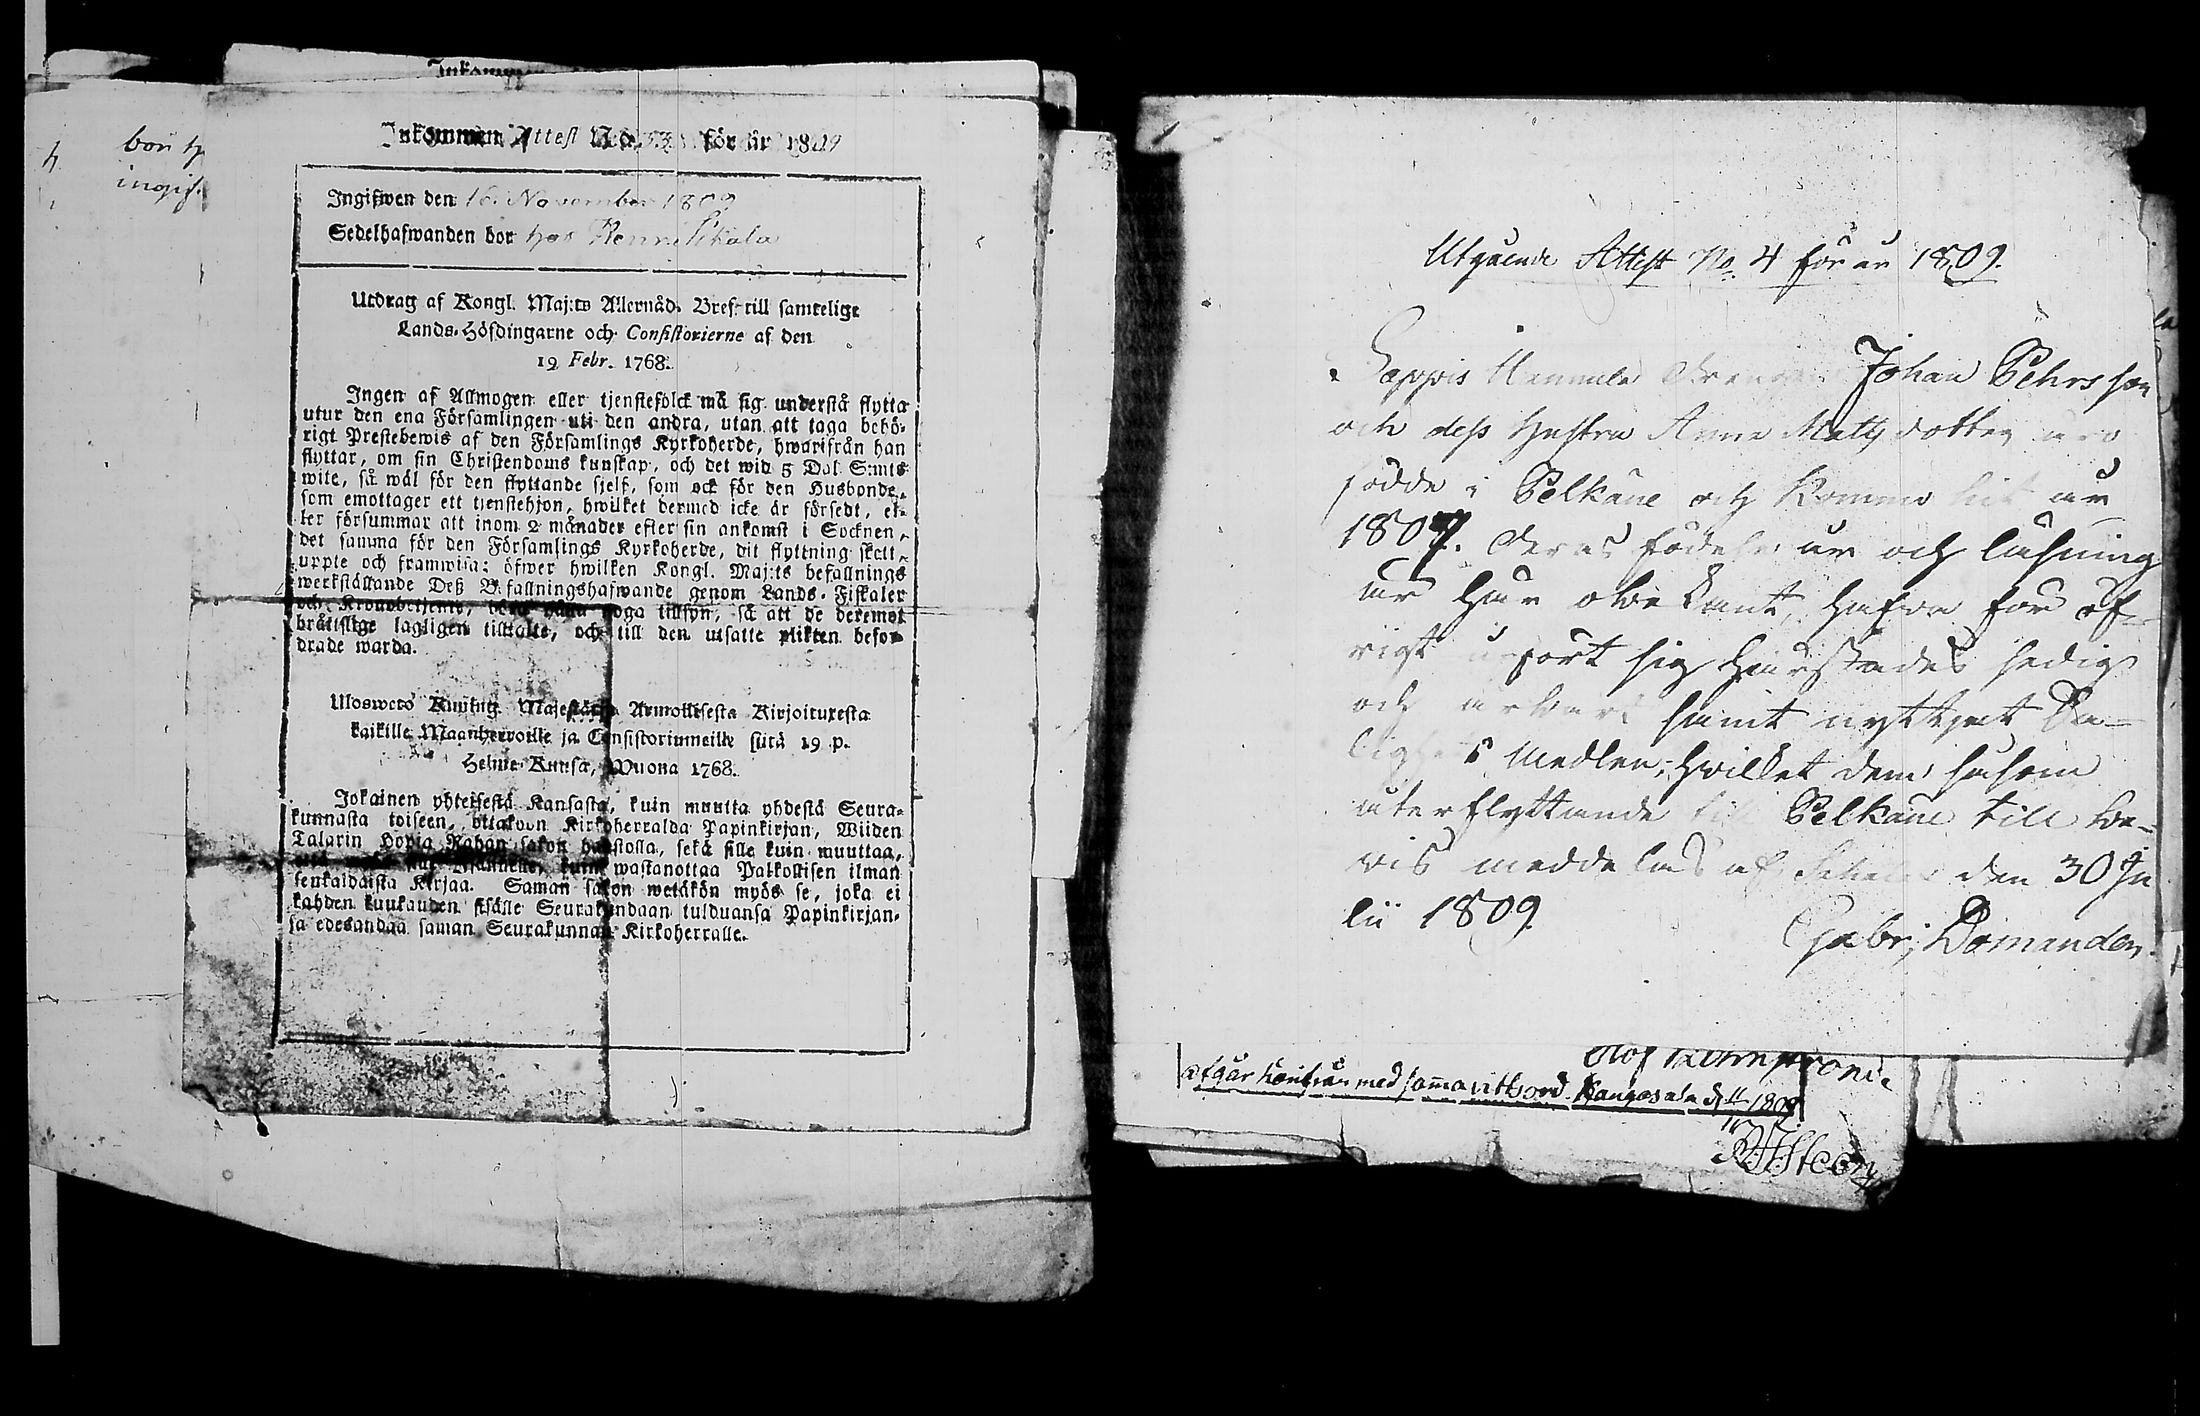 bör h
ingif.
Inkommen Attest No. 53 för år 1809
Ingifwen den 16. November 1809
Sedelhafwanden bor hos Renni Likala
Utdrag af Kongl. Maj:ts Allernåd. Bref till samtelige
Lands-Höfdingarne och Consistorierne af den
19 Febr. 1768.
Ingen af Allmogen eller tjenstefolck må sig understå flytta
utur den ena Församlingen uti den andra, utan att taga behö-
rigt Prestebewis af den Församlings Kyrkoherde, hwarifrån han
flyttar, om sin Christendoms kunskap, och det wid 5 Dal. S:mts
wite, så wäl för den flyttande sjelf, som ock för den Husbonde,
som emottager ett tjenstehjon, hwilket dermed icke är försedt, el-
ler försummar att inom 2 månader efter sin ankomst i Socknen,
det samma för den Församlings Kyrkoherde, dit flyttning skett,
uppte och framwisa: öfwer hwilken Kongl. Maj:ts befallnings
werkställande Deß Befallningshafwande genom Lands-Fiskaler
och Kronobetjente, böra hålla noga tillsyn, så att de deremot
bråttslige lagligen tilltalte, och till den utsatte plikten befor-
drade warda.
Ulosweto Kuning. Majestätin Armollisesta Kirjoituxesta
kaikille Maanherroille ja Consistoriumeille siitä 19 p.
Helme-Kuusa, Wuona 1768.
Jokainen yhteisestä Kansasta, kuin muutta yhdestä Seura-
kunnasta toiseen, ottakoon Kirkoherralda Papinkirjan, Wiiden
Talarin Hopia Rahan sakon haastolla, sekä sille kuin muuttaa,
että Isännelle, kuin wastanottaa Palkollisen ilman
senkaldaista Kirjaa. Saman sakon wetäkön myös se, joka ei
kahden kuukauden sisälle Seurakundaan tulduansa Papinkirjan-
sa edesandaa saman Seurakunnan Kirkoherralle.
Utgående Attest No. 4 för år 1809.
Johan Pehrsson
och dess Hustru Anna Mattsdotter äro
födde i Pelkäne och komne hit år
1807. Deras födelse år och läsning
är här obekant, hafva för öf-
rigt upfört sig härstädes sedigt
och ärbart samt nyttjat Sa-
lighets Medlen; Hvilket dem såsom
återflyttande till Pelkäne till be-
vis meddelas af den 30 Ju
lii 1809.
Gabr. Domander.
afgår härifrån med samma vittsord. Kangasala d. 11 1809